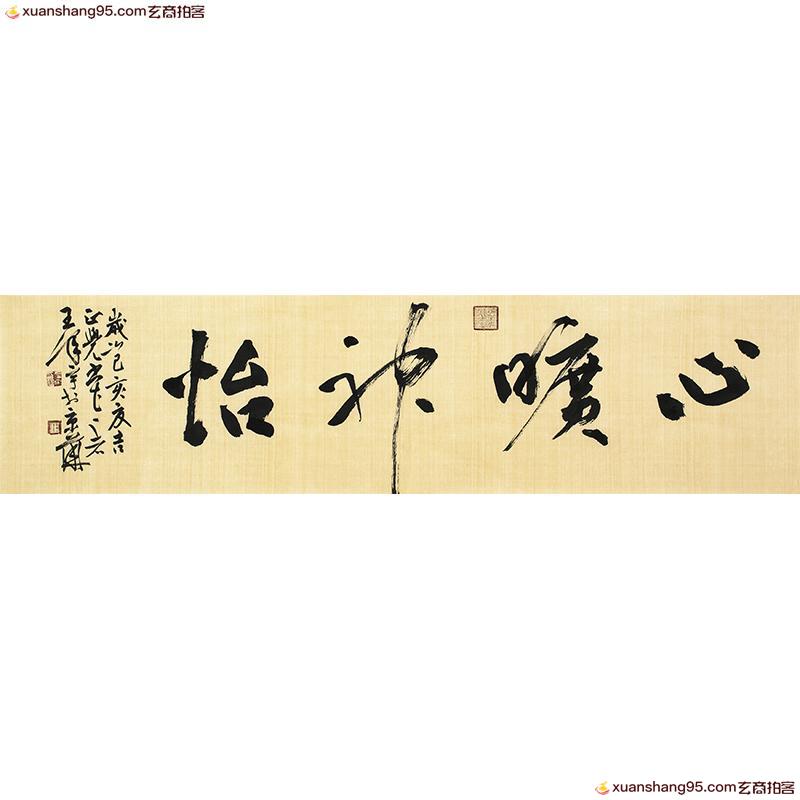 xuanshang95.com玄商拍客
心曠神怡
歲次己亥夏吉
正覺堂下之者
xuanshang95.com玄商拍客